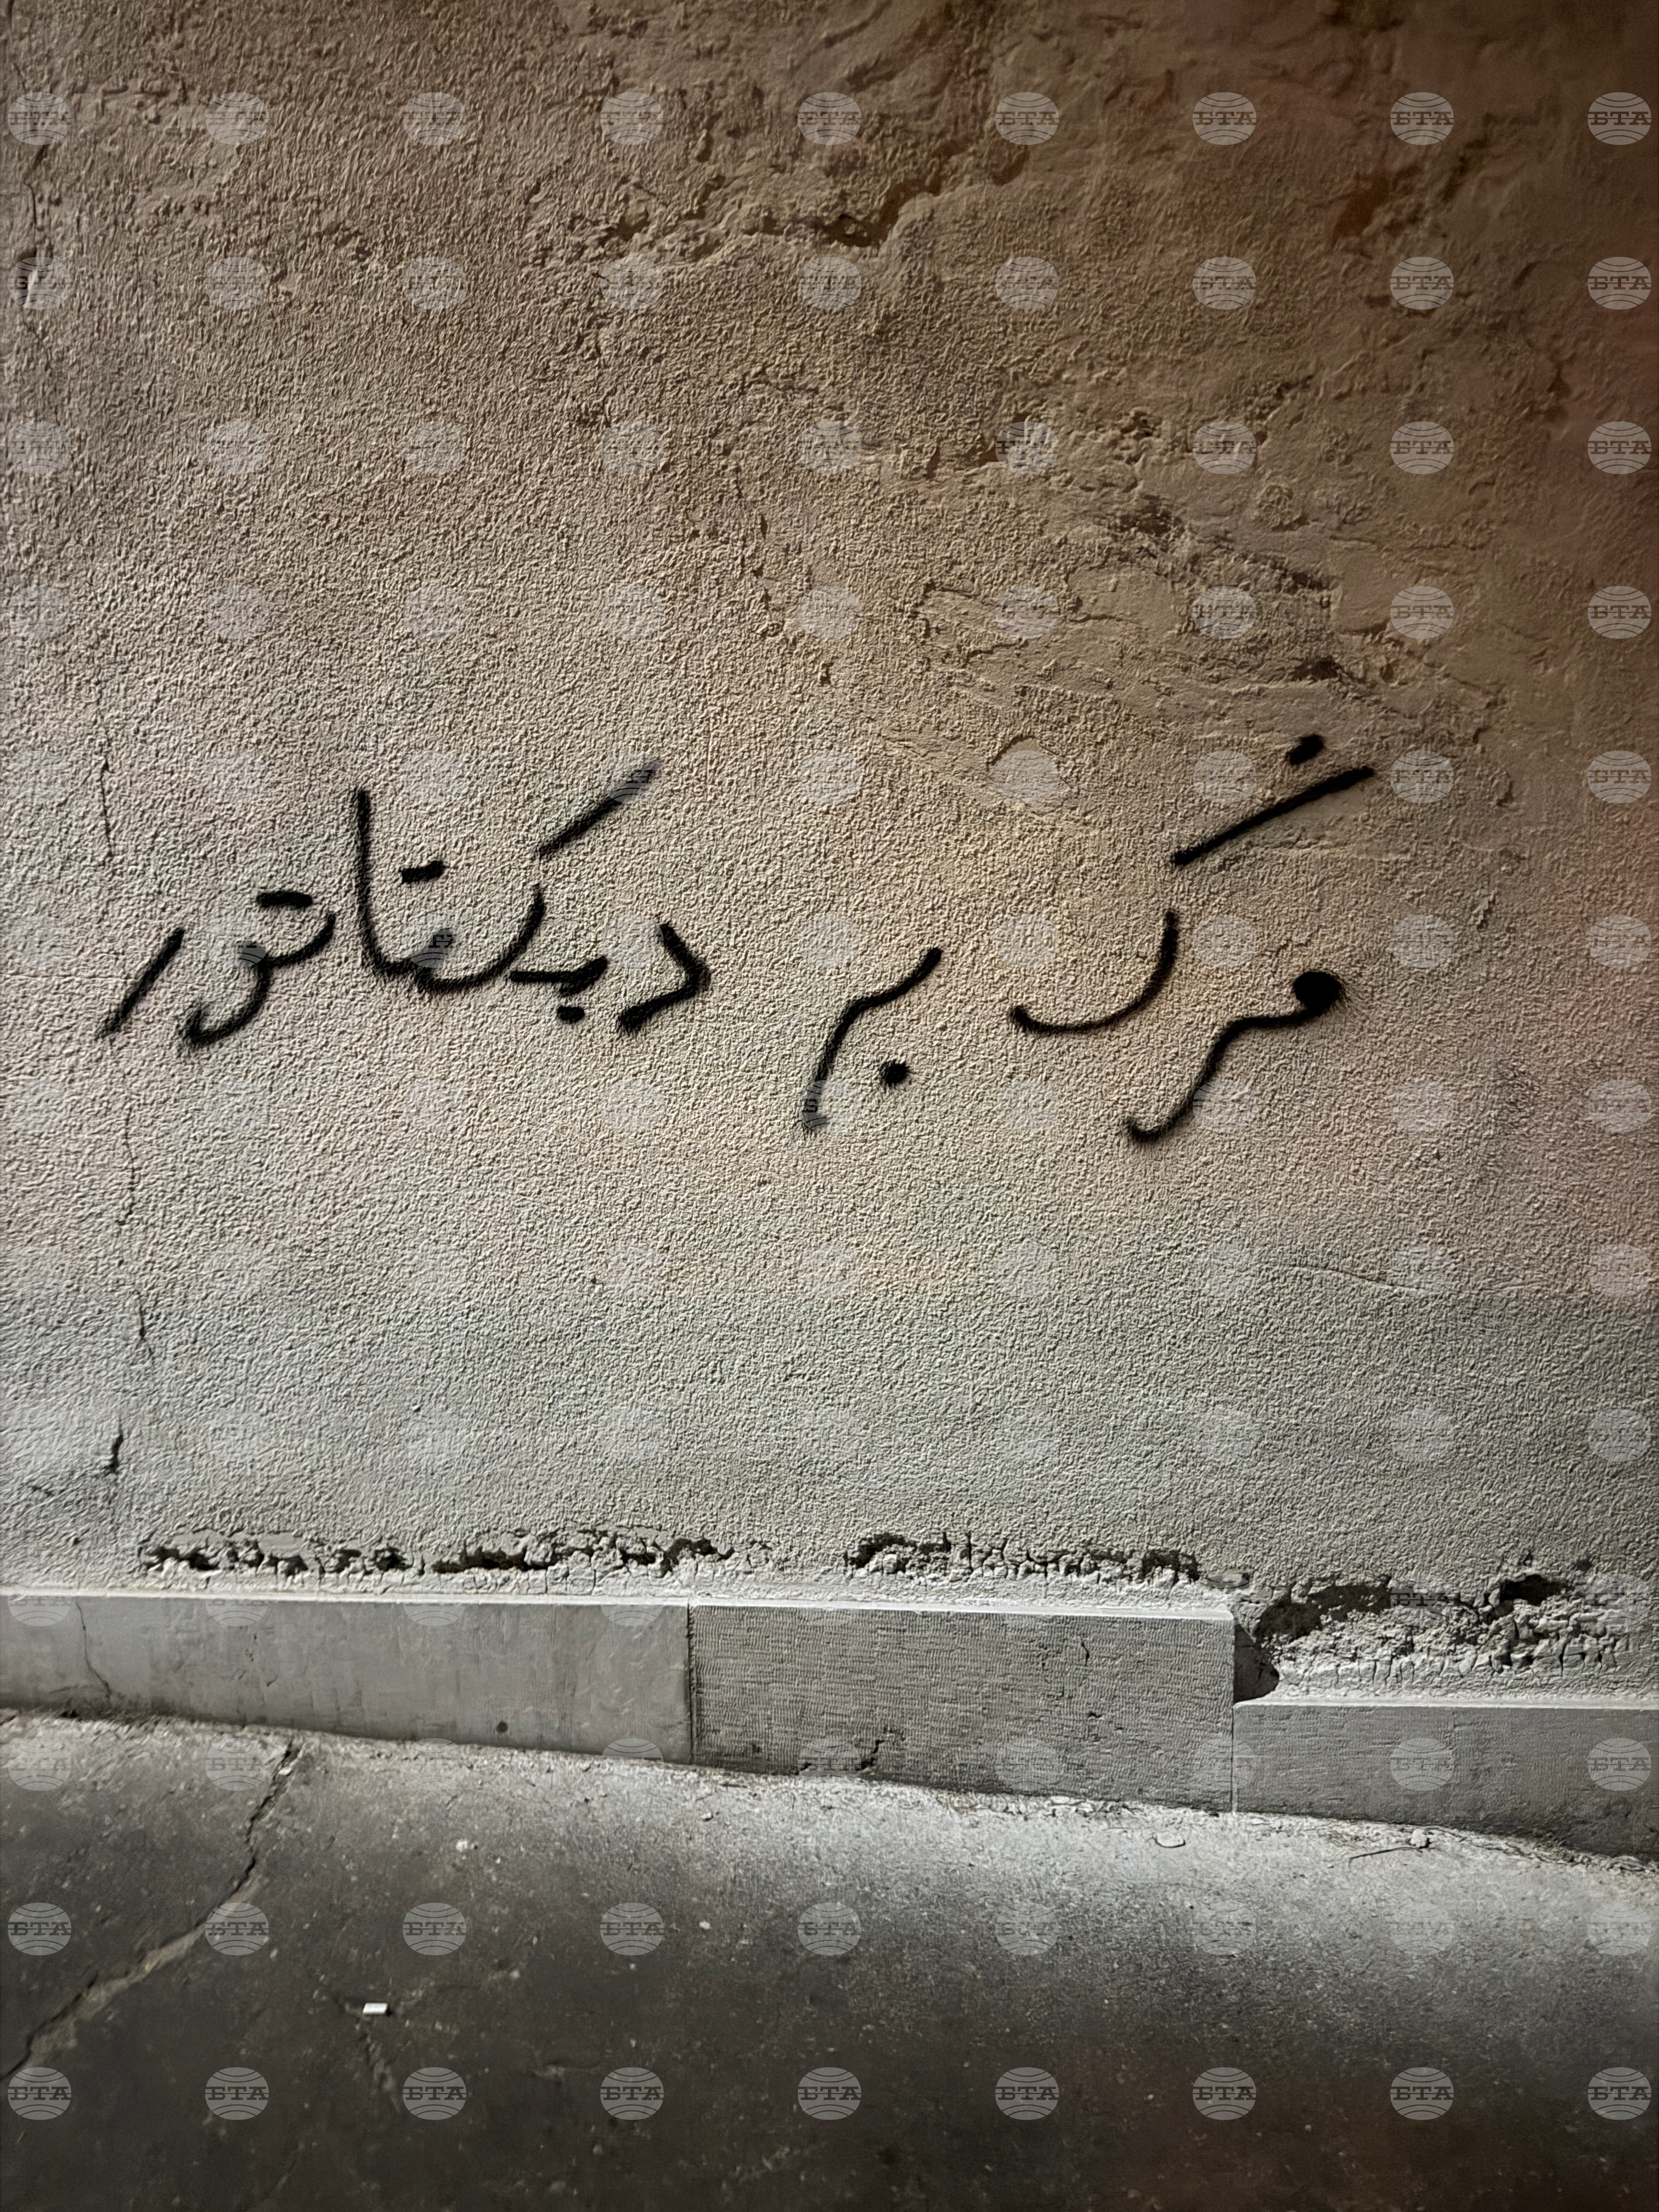 مرگ بر دیکتاتور
БТА